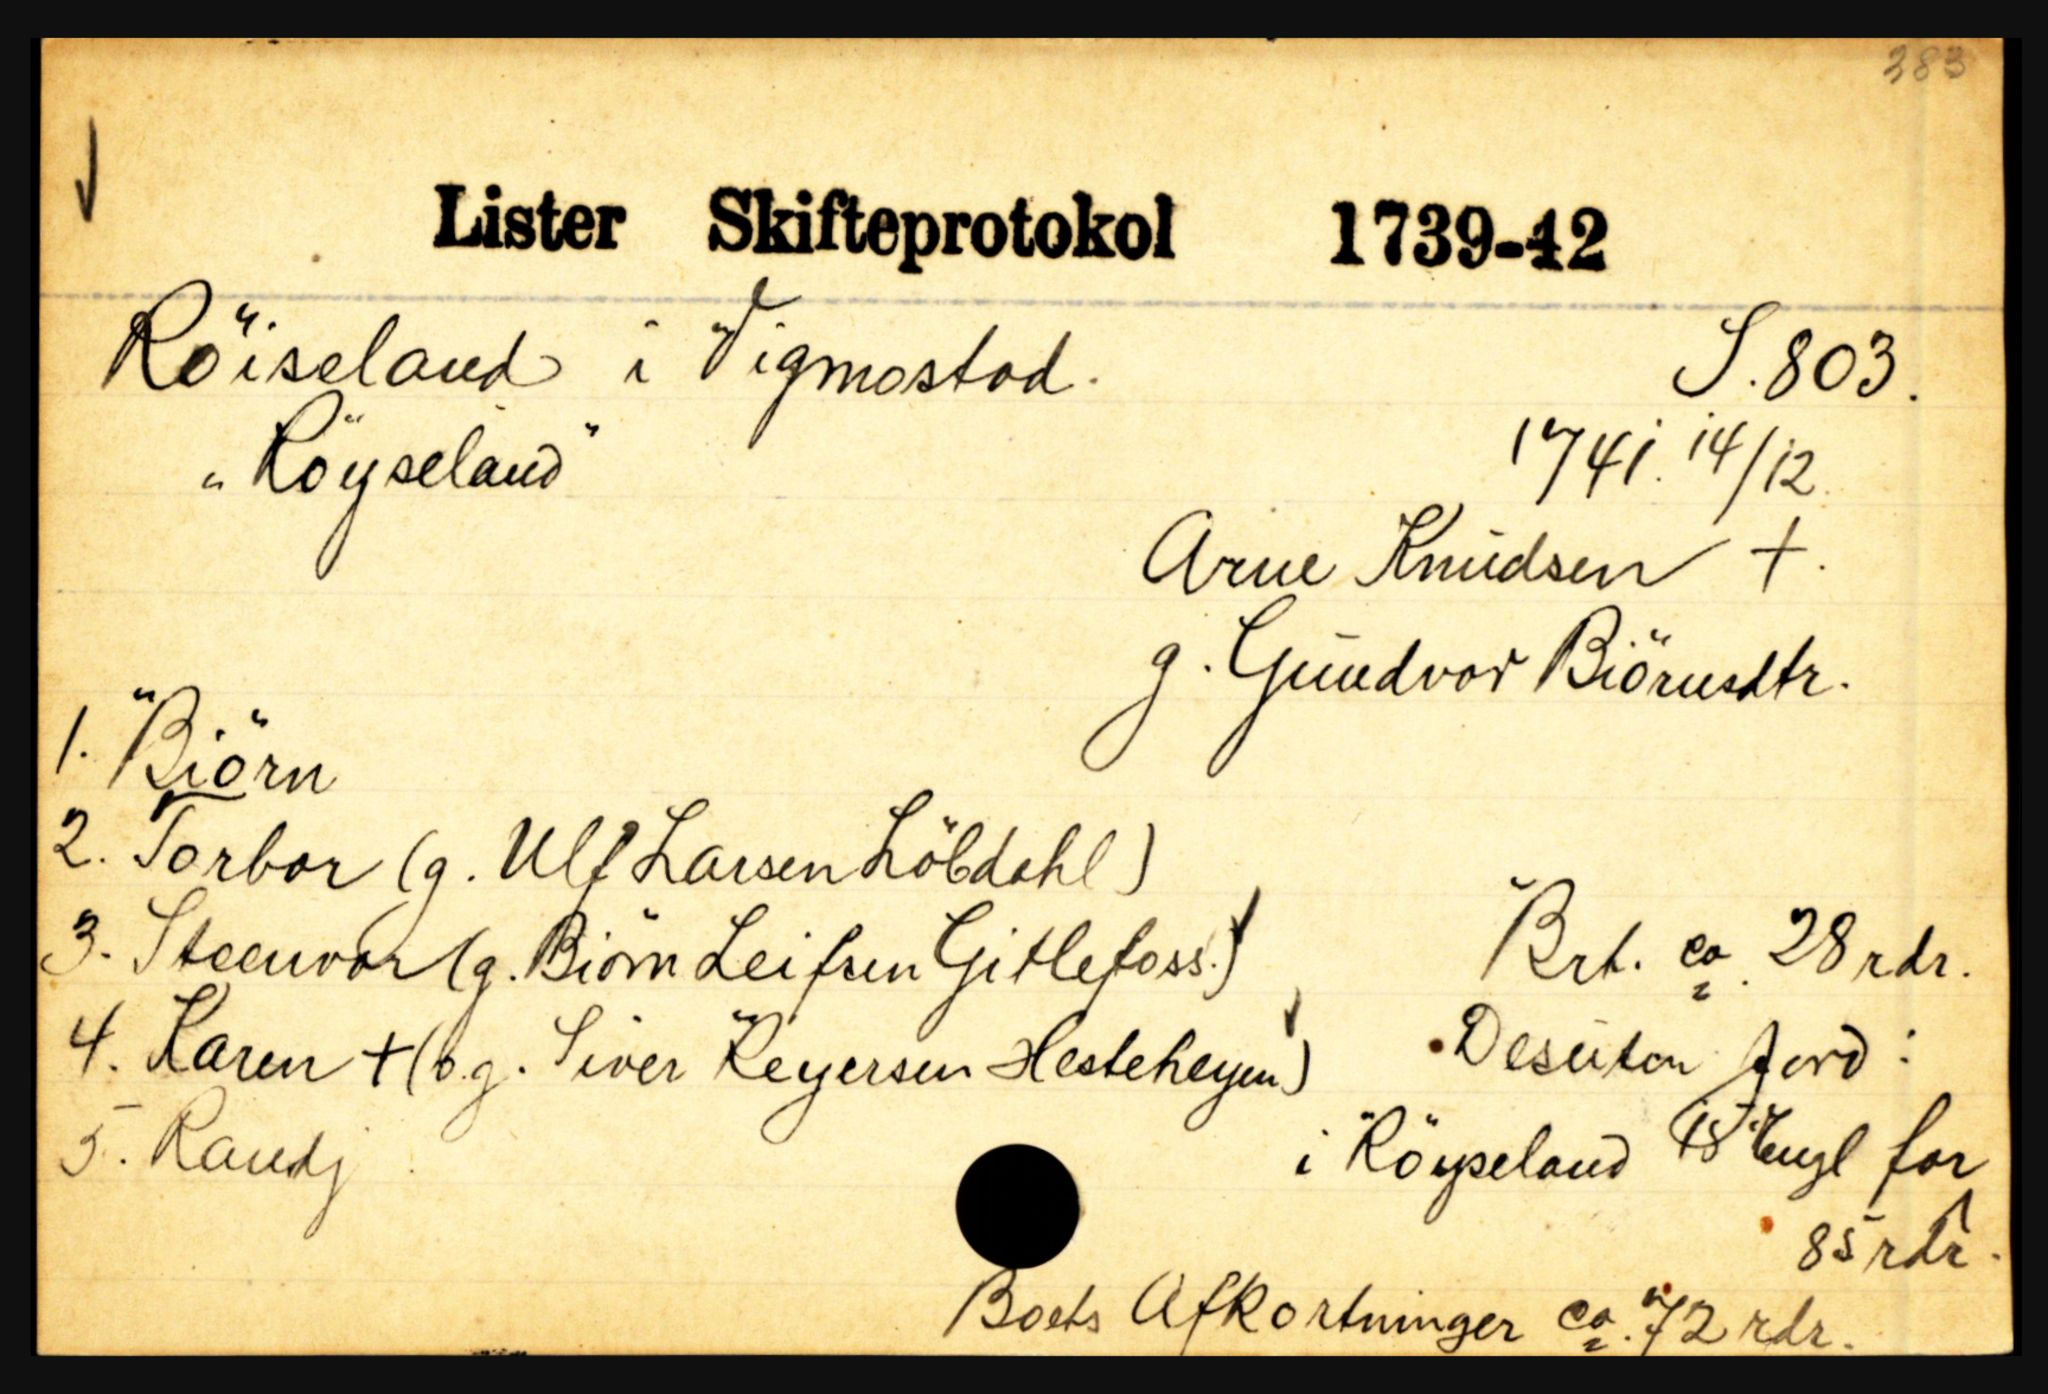 383
Lister Skifteprotokol 1739-42
Röiseland i Vigmostad. S. 803.
"Röyseland" 1741. 14/12.
Arne Knudsen +.
g. Gundvor Biörnsdtr.
1. Biörn
2. Torbor (g. Ulf Larsen Löbdahl)
3. Steenvor (g. Biörn Leifsen Gitlefoss.) Brt. ca. 28 rdr.
4. Karen + (o.g. Siver Reyersen Hesteheyen) Desuten jord:
5. Randj i Röyseland Engl for
85 rdr.
Boets Afkortninger ca. 72 rdr.